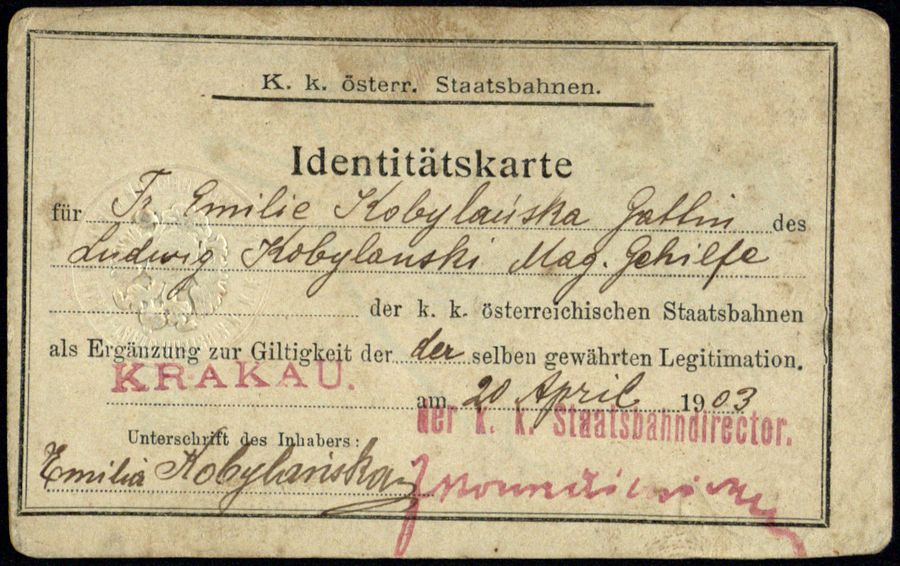 K. k. österr. Staatsbahnen.
Identitätskarte
für Fr. Emilie Kobylańska Gattin des
Ludwig Kobylanski Mag. Gehilfe
der k. k. österreichischen Staatsbahnen
als Ergänzung zur Giltigkeit der der selben gewährten Legitimation.
KRAKAU.
am 20 April 1903
der k. k. Staatsbahndirector.
Unterschrift des Inhabers:
Emilia Kobylańska